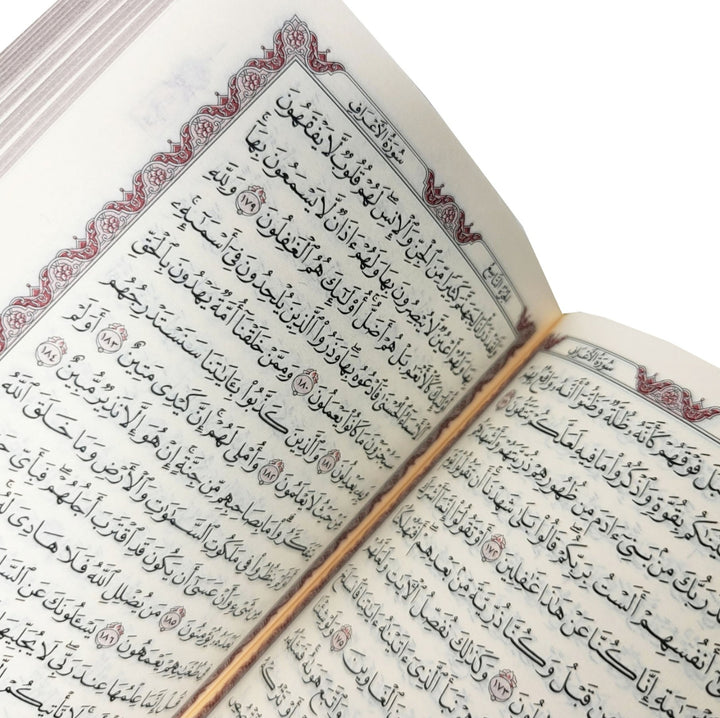 سُورَةُ الأَعْرَافِ
ٱلْجَبَلَ فَوْقَهُمْ كَأَنَّهُۥ ظُلَّةٌ وَظَنُّوٓا۟ أَنَّهُۥ وَاقِعٌۢ بِهِمْ
بِقُوَّةٍ وَٱذْكُرُوا۟ مَا فِيهِ لَعَلَّكُمْ تَتَّقُونَ
رَبُّكَ مِنۢ بَنِىٓ ءَادَمَ مِن ظُهُورِهِمْ ذُرِّيَّتَهُمْ وَأَشْهَدَهُمْ
أَنفُسِهِمْ أَلَسْتُ بِرَبِّكُمْ قَالُوا۟ بَلَىٰ شَهِدْنَآ أَن تَقُولُوا۟
إِنَّا كُنَّا عَنْ هَٰذَا غَٰفِلِينَ ١٧٢ أَوْ تَقُولُوٓا۟ إِنَّمَآ أَشْرَكَ
قَبْلُ وَكُنَّا ذُرِّيَّةً مِّنۢ بَعْدِهِمْ أَفَتُهْلِكُنَا
١٧٣ وَكَذَٰلِكَ نُفَصِّلُ ٱلْءَايَٰتِ وَلَعَلَّهُمْ
نَبَأَ ٱلَّذِىٓ ءَاتَيْنَٰهُ ءَايَٰتِنَا فَٱنسَلَخَ
ٱلْغَاوِينَ ١٧٥
الجُزْءُ التَّاسِعُ
سُورَةُ الأَعْرَافِ
وَلَقَدْ ذَرَأْنَا لِجَهَنَّمَ كَثِيرًا مِّنَ ٱلْجِنِّ وَٱلْإِنسِ لَهُمْ قُلُوبٌ لَّا يَفْقَهُونَ
بِهَا وَلَهُمْ أَعْيُنٌ لَّا يُبْصِرُونَ بِهَا وَلَهُمْ ءَاذَانٌ لَّا يَسْمَعُونَ بِهَآ
أُو۟لَٰٓئِكَ كَٱلْأَنْعَٰمِ بَلْ هُمْ أَضَلُّ أُو۟لَٰٓئِكَ هُمُ ٱلْغَٰفِلُونَ ١٧٩ وَلِلَّهِ
ٱلْأَسْمَآءُ ٱلْحُسْنَىٰ فَٱدْعُوهُ بِهَا وَذَرُوا۟ ٱلَّذِينَ يُلْحِدُونَ فِىٓ أَسْمَٰٓئِهِۦ
سَيُجْزَوْنَ مَا كَانُوا۟ يَعْمَلُونَ ١٨٠ وَمِمَّنْ خَلَقْنَآ أُمَّةٌ يَهْدُونَ بِٱلْحَقِّ
وَبِهِۦ يَعْدِلُونَ ١٨١ وَٱلَّذِينَ كَذَّبُوا۟ بِـَٔايَٰتِنَا سَنَسْتَدْرِجُهُم
مِّنْ حَيْثُ لَا يَعْلَمُونَ ١٨٢ وَأُمْلِى لَهُمْ إِنَّ كَيْدِى مَتِينٌ ١٨٣ أَوَلَمْ
يَتَفَكَّرُوا۟ مَا بِصَاحِبِهِم مِّن جِنَّةٍ إِنْ هُوَ إِلَّا نَذِيرٌ مُّبِينٌ ١٨٤
أَوَلَمْ يَنظُرُوا۟ فِى مَلَكُوتِ ٱلسَّمَٰوَٰتِ وَٱلْأَرْضِ وَمَا خَلَقَ ٱللَّهُ
مِن شَىْءٍ وَأَنْ عَسَىٰٓ أَن يَكُونَ قَدِ ٱقْتَرَبَ أَجَلُهُمْ فَبِأَىِّ
حَدِيثٍۭ بَعْدَهُۥ يُؤْمِنُونَ ١٨٥ مَن يُضْلِلِ ٱللَّهُ فَلَا هَادِىَ لَهُۥ
طُغْيَٰنِهِمْ يَعْمَهُونَ ١٨٦ يَسْـَٔلُونَكَ عَنِ
قُلْ إِنَّمَا عِلْمُهَا عِندَ رَبِّى لَا يُجَلِّيهَا
لَا تَأْتِيكُمْ